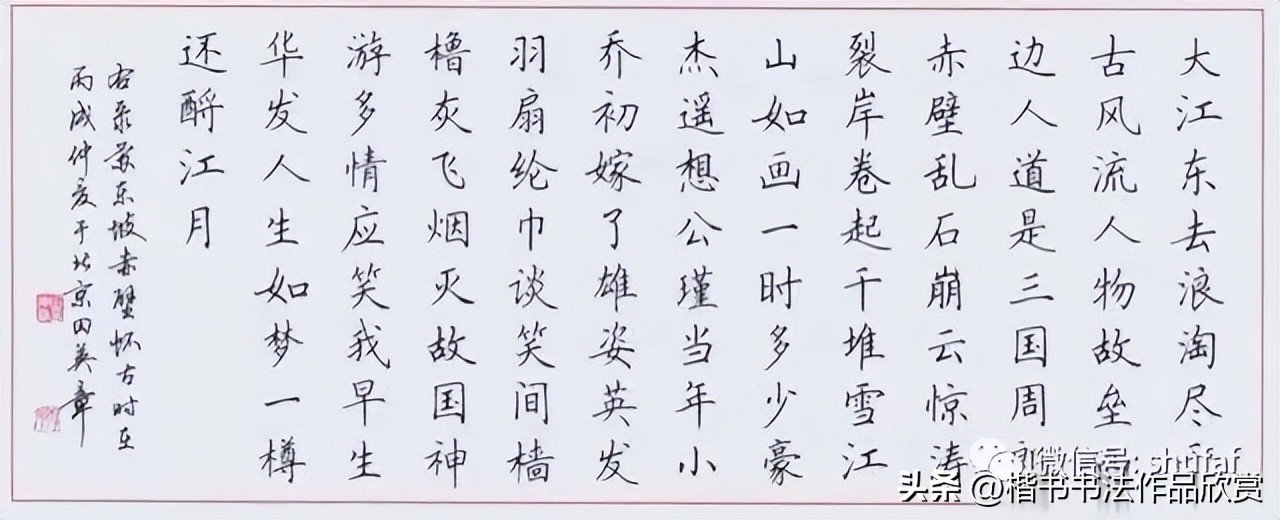 大江东去浪淘尽
古风流人物故垒西
边人道是三国周郎
赤壁乱石崩云惊涛
裂岸卷起千堆雪江
山如画一时多少豪
杰遥想公瑾当年小
乔初嫁了雄姿英发
羽扇纶巾谈笑间樯
橹灰飞烟灭故国神
游多情应笑我早生
华发人生如梦一樽
还酹江月
右录苏东坡赤壁怀古时在
丙戌仲夏于北京田英章
微信号: shufaf
头条 @楷书书法作品欣赏